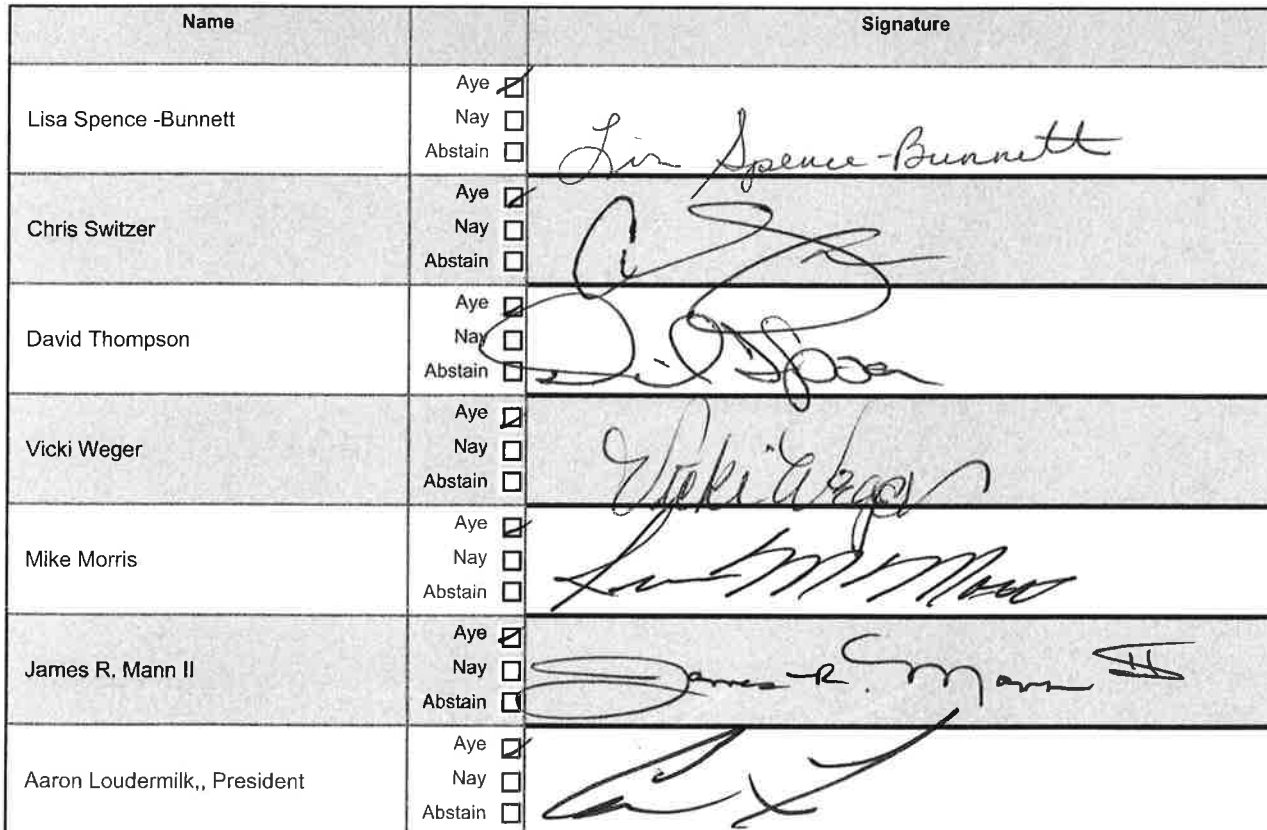 Name Signature
Aye
Lisa Spence -Bunnett Nay
Abstain
Lisa Spence-Bunnett
Aye
Chris Switzer Nay
Abstain
Aye
David Thompson Nay
Abstain
Aye
Vicki Weger Nay
Abstain
Vicki Weger
Aye
Mike Morris Nay
Abstain
Aye
James R. Mann II Nay
Abstain
James R. Mann II
Aye
Aaron Loudermilk,, President Nay
Abstain